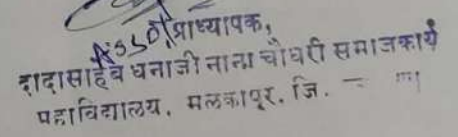 Asso. प्राध्यापक,
दादासाहेब धनाजी नाना चौधरी समाजकार्य
महाविद्यालय, मलकापूर, जि.